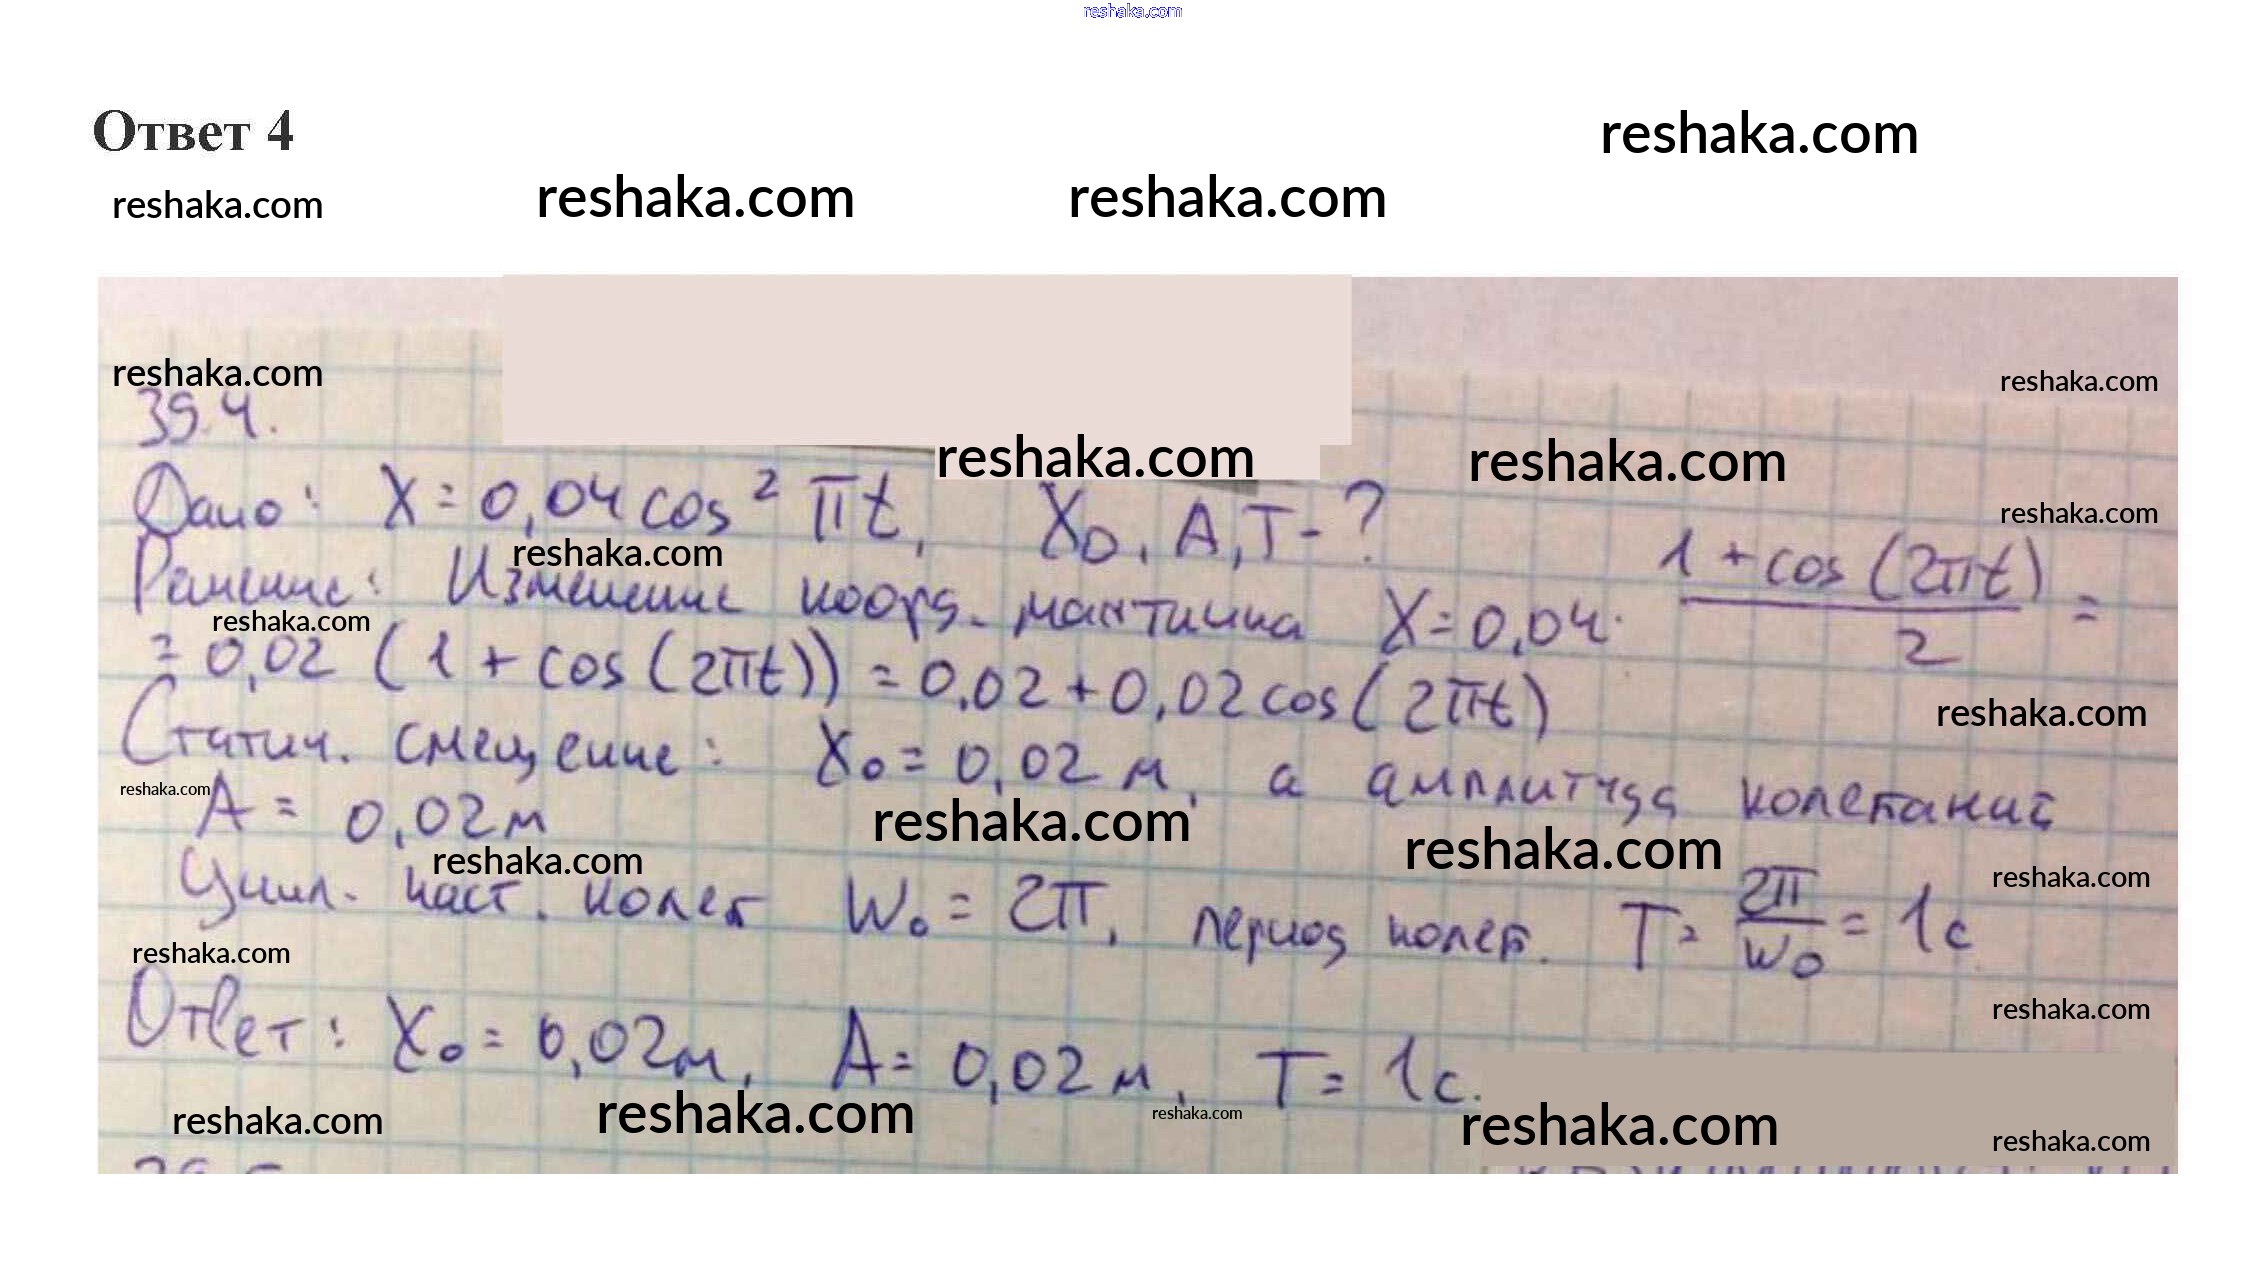 reshaka.com
Ответ 4
reshaka.com
reshaka.com reshaka.com reshaka.com
reshaka.com reshaka.com
39.4.
reshaka.com reshaka.com
Дано: X = 0,04 cos² πt, X₀, A, T - ?
reshaka.com
reshaka.com
Решение: Изменение коорд. маятника X = 0,04 · (1 + cos (2πt))/2 =
reshaka.com
= 0,02 (1 + cos (2πt)) = 0,02 + 0,02 cos (2πt)
reshaka.com
Статич. смещение: X₀ = 0,02 м, а амплитуда колебаний
reshaka.com
A = 0,02 м
reshaka.com reshaka.com
reshaka.com reshaka.com
Цикл. част. колеб W₀ = 2π, период колеб. T = 2π/W₀ = 1 с
reshaka.com
reshaka.com
Ответ: X₀ = 0,02 м, A = 0,02 м, T = 1 с.
reshaka.com reshaka.com reshaka.com reshaka.com reshaka.com